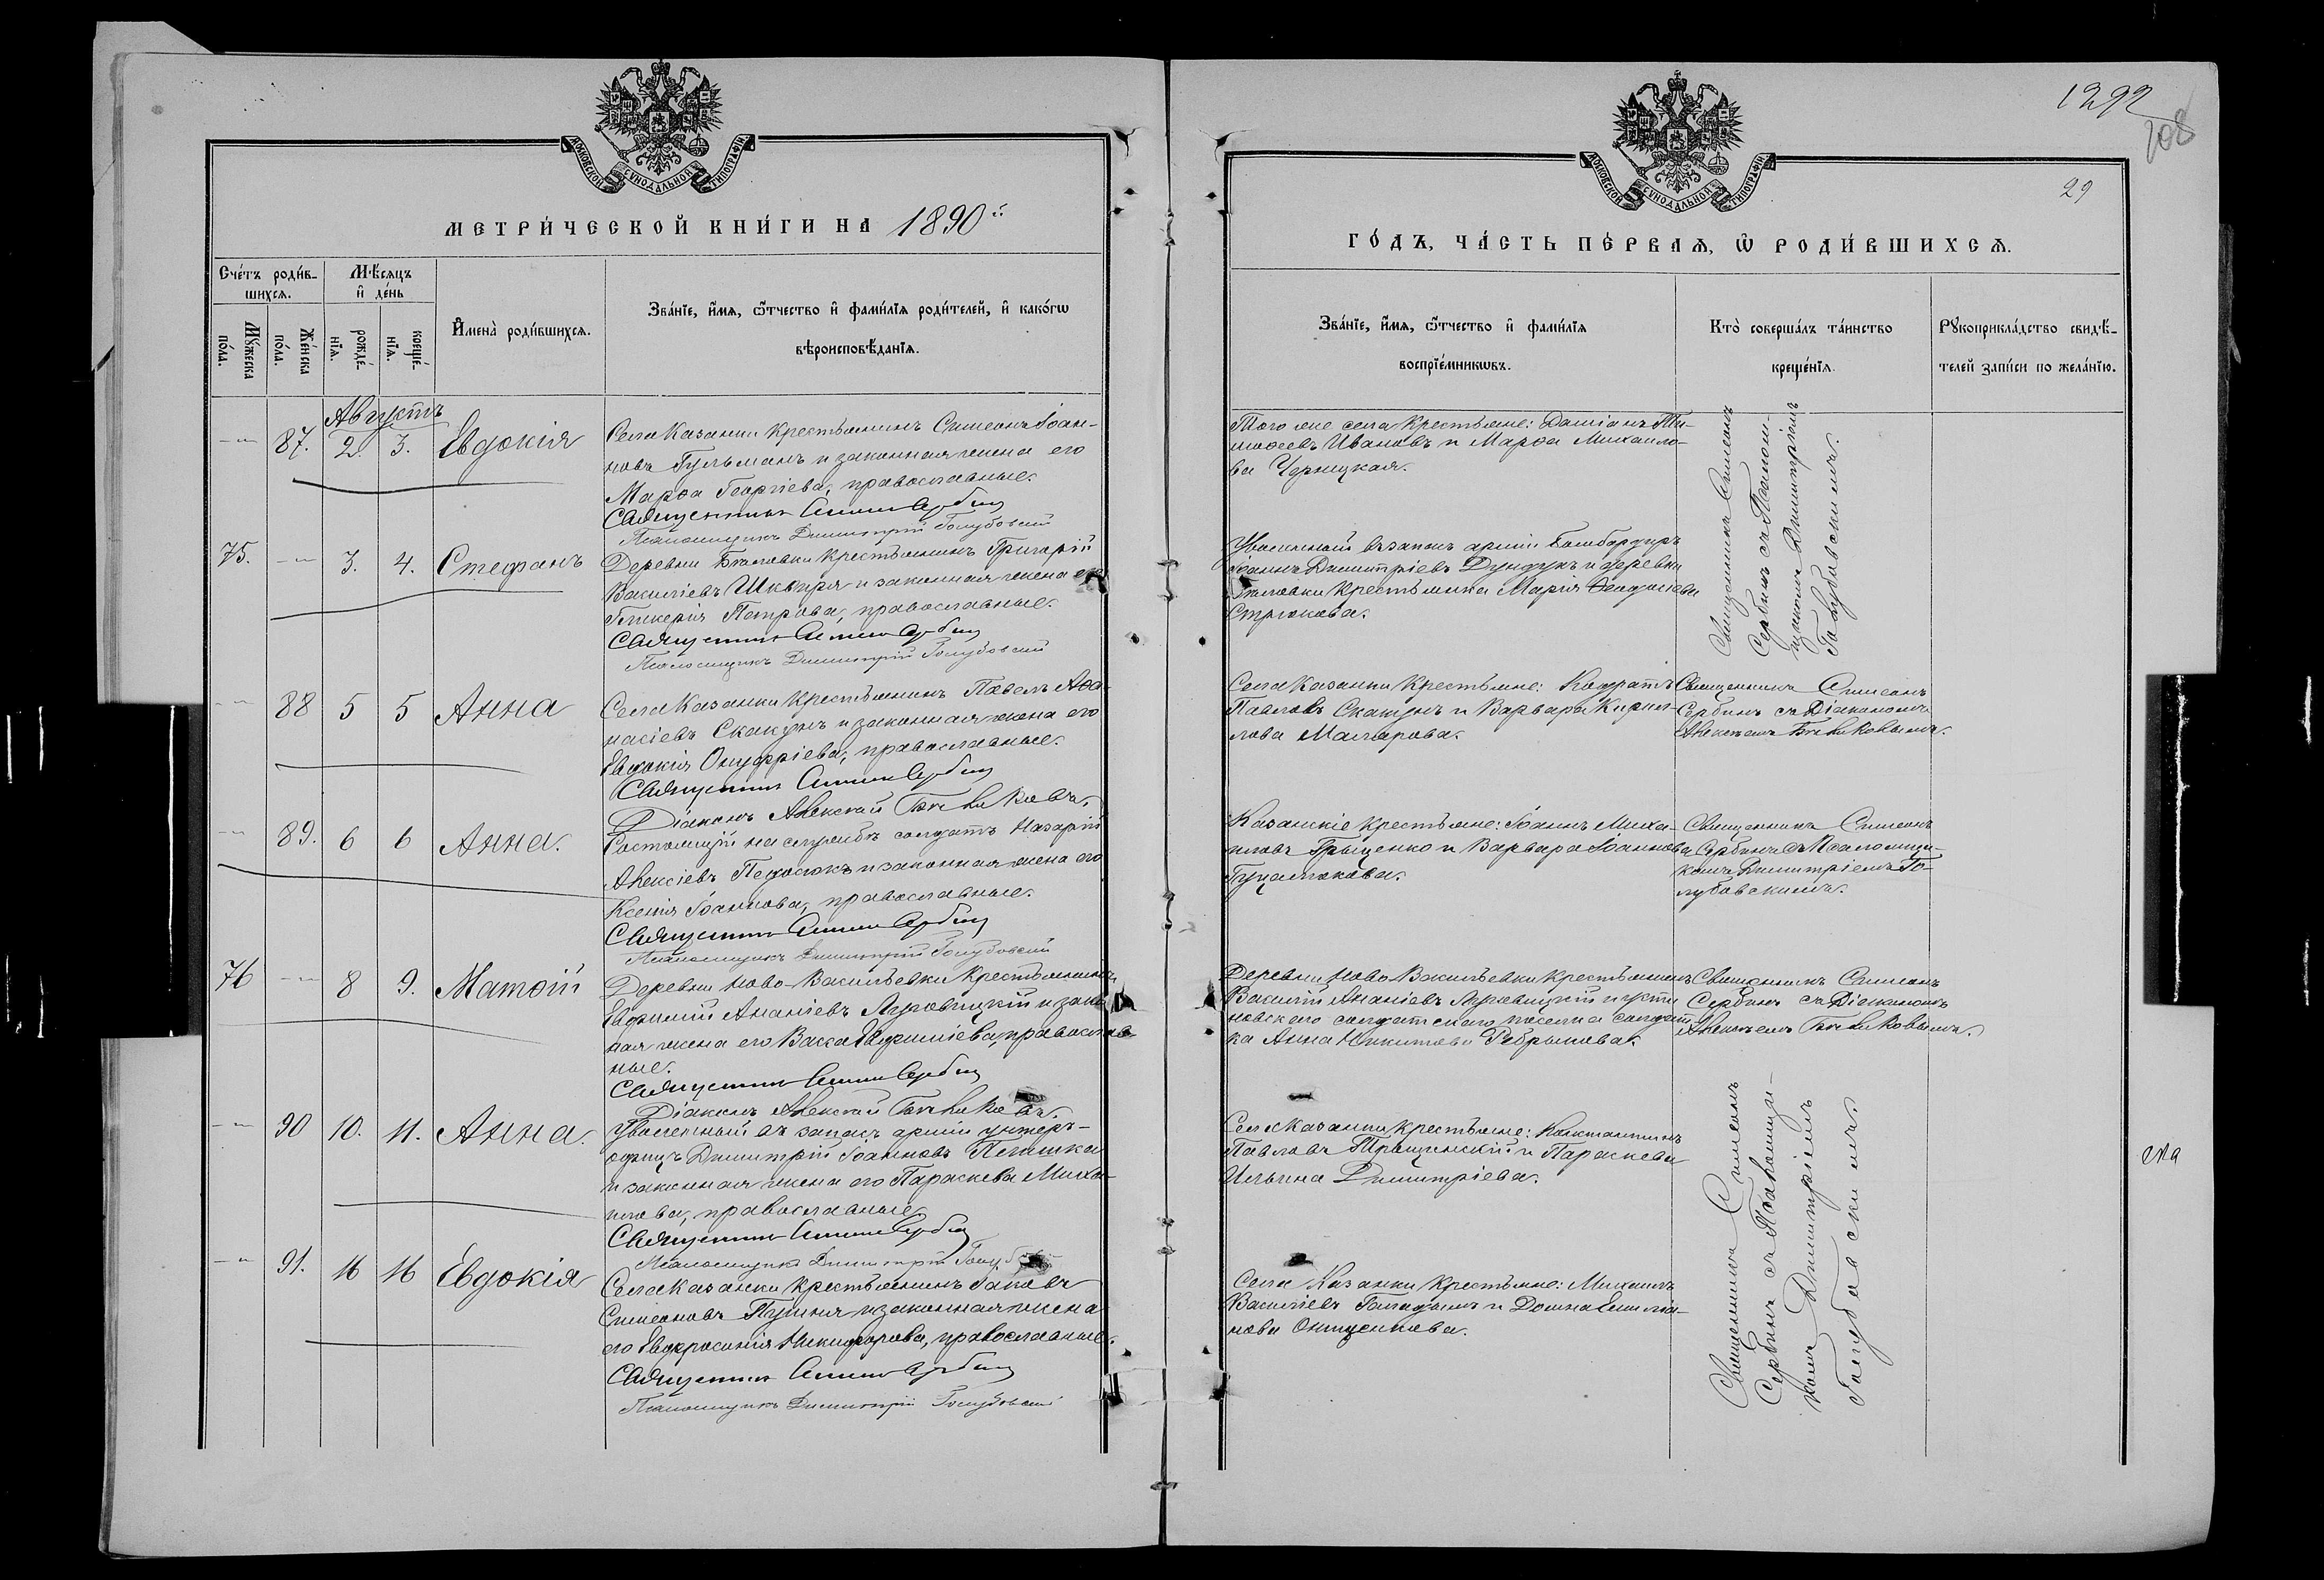 МОСКОВСКОЙ СѴНОДАЛЬНОЙ ТИПОГРАФІИ.
МЕТРИ́ЧЕСКОЙ КНИ́ГИ НА 1890й
Сче́тъ роди́в-
шихсѧ.
Мꙋ́жеска
по́ла.
Же́нска
по́ла.
Мѣ́сѧцъ
и҆ де́нь
рожде́-
нїѧ.
креще́-
нїѧ.
И҆мена̀ роди́вшихсѧ.
Зва́нїе, и҆́мѧ, ѻ҆́тчество и҆ фами́лїѧ роди́телей, и҆ како́гѡ
вѣроисповѣ́данїѧ.
Августъ
87. 2. 3. Евдокія
Села Казанки крестьянинъ Симеонъ Іоан-
новъ Гульманъ и законная жена его
Марѳа Георгіева, православные.
Священникъ Симеонъ Сербинъ
Псаломщикъ Димитрій Голубовскій
75. 3. 4. Стефанъ
Деревни крестьянинъ Григорій
Василіевъ Шкапря и законная жена его
Гликерія Петрова, православные.
Священникъ Симеонъ Сербинъ
Псаломщикъ Димитрій Голубовскій
88 5 5 Анна
Села Казанки крестьянинъ Павелъ Аѳа-
насіевъ Скакунъ и законная жена его
Евдокія Онуфріева, православные.
Священникъ Симеонъ Сербинъ
Діаконъ Алексѣй
89. 6 6 Анна.
Состоящій на службѣ солдатъ Назарій
Алексіевъ и законная жена его
Ксенія Іоаннова, православные.
Священникъ Симеонъ Сербинъ
Псаломщикъ Димитрій Голубовскій
76 8 9. Матѳій
Деревни Ново-Васильевки крестьянинъ
Евфимій Ананіевъ и закон-
ная жена его Васса Евфиміева, православ-
ные.
Священникъ Симеонъ Сербинъ
Діаконъ Алексѣй
90 10. 11. Анна.
Уволенный въ запасъ арміи унтеръ-
офиц. Димитрій Іоанновъ
и законная жена его Параскева Миха-
илова, православные
Священникъ Симеонъ Сербинъ
Псаломщикъ Димитрій
91. 16 16 Евдокія
Села Казанки крестьянинъ Іаковъ
Симеоновъ и законная жена
его Евфросинія Никифорова, православные.
Священникъ Симеонъ Сербинъ
Псаломщикъ Димитрій Голубовскій
1292
208
29
МОСКОВСКОЙ СѴНОДАЛЬНОЙ ТИПОГРАФІИ.
ГО́ДЪ, ЧА́СТЬ ПЕ́РВАѦ, Ѡ҆ РОДИ́ВШИХСѦ.
Зва́нїе, и҆́мѧ, ѻ҆́тчество и҆ фами́лїѧ
воспрїе́мникѡвъ.
Кто̀ соверша́лъ та́инство
креще́нїѧ.
Рꙋкоприкла́дство свидѣ́-
телей за́писи по жела́нїю.
Того же села крестьяне: Даміанъ Ти-
моѳеевъ Ивановъ и Марѳа Михаило-
ва Черницкая.
Священникъ Симеонъ
Сербинъ съ Псалом-
щикомъ Димитріемъ
Голубовскимъ.
Уволенный въ запасъ арміи бомбардиръ
Іоаннъ Димитріевъ Дундукъ и деревни
крестьянка Марія Ѳеодосіева
Стрюкова.
Села Казанки крестьяне: Кодратъ
Павловъ Скакунъ и Варвара Кирил-
лова Малярова.
Священникъ Симеонъ
Сербинъ съ Діакономъ
Алексѣемъ
Казанскіе крестьяне: Іоаннъ Миха-
иловъ Грыщенко и Варвара Іоаннова
Священникъ Симеонъ
Сербинъ съ Псаломщи-
комъ Димитріемъ Го-
лубовскимъ.
Деревни Ново Васильевки крестьянинъ
Василій Ананіевъ и Усти-
новскаго солдатскаго поселка солдат-
ка Анна Никитова
Священникъ Симеонъ
Сербинъ съ Діакономъ
Алексѣемъ
Села Казанки крестьяне: Константинъ
Павловъ и Параскева
Ильина Димитріева.
Священникъ Симеонъ
Сербинъ съ Псаломщи-
комъ Димитріемъ
Голубовскимъ.
Села Казанки крестьяне: Михаилъ
Василіевъ и Домна Емиліа-
нова Онищенкова.